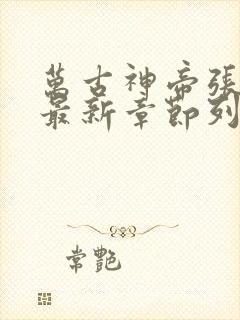 萬古神帝張
最新章節列
常艷